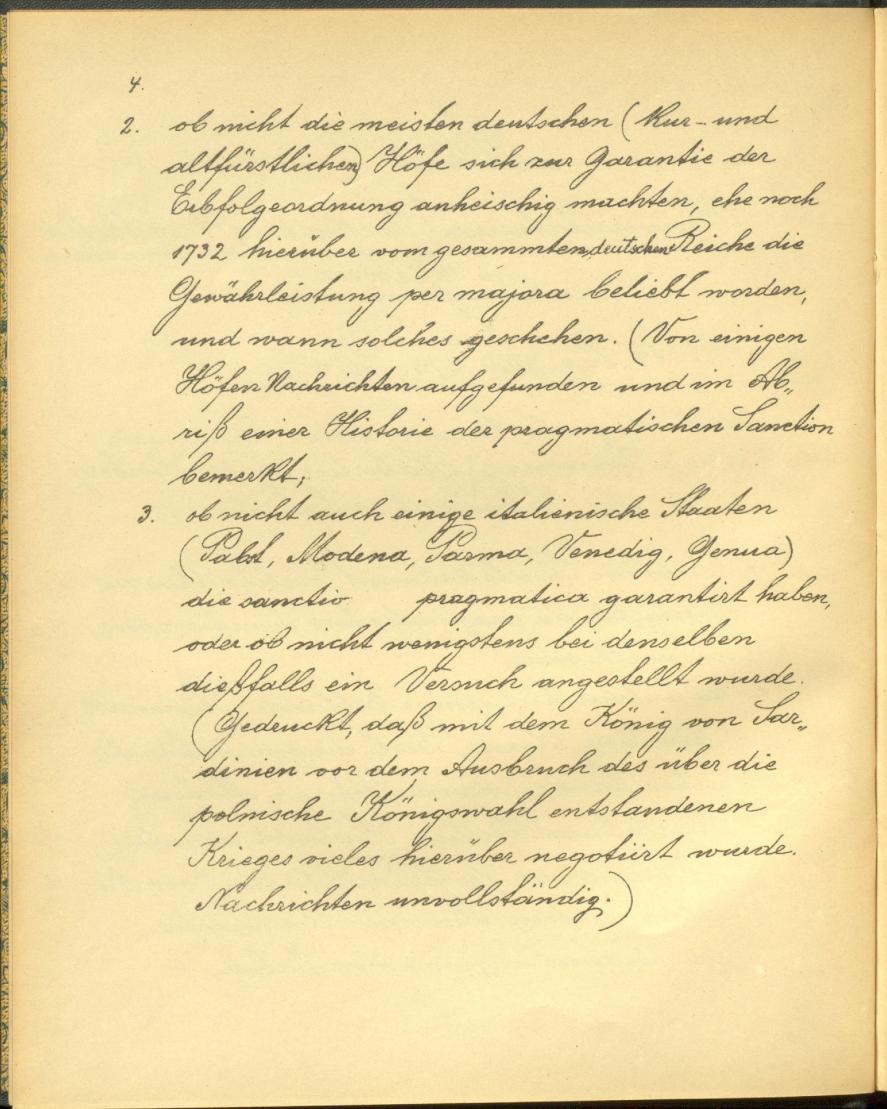 4.
2. ob nicht die meisten deutschen (Kur- und
altfürstlichen) Höfe sich zur Garantie der
Erbfolgeordnung anheischig machten, ehe noch
1732 hierüber vom gesammten deutschen Reiche die
Gewährleistung per majora beliebt worden,
und wann solches geschehen. (Von einigen
Höfen Nachrichten aufgefunden und im Ab„
riß einer Historie der pragmatischen Sanction
bemerkt;
3. ob nicht auch einige italienische Staaten
(Pabst, Modena, Parma, Venedig, Genua)
die sanctio pragmatica garantirt haben,
oder ob nicht wenigstens bei denselben
dießfalls ein Versuch angestellt wurde.
(Gedruckt, daß mit dem König von Sar„
dinien vor dem Ausbruch des über die
polnische Königswahl entstandenen
Krieges vieles hierüber negotiirt wurde.
Nachrichten unvollständig.)